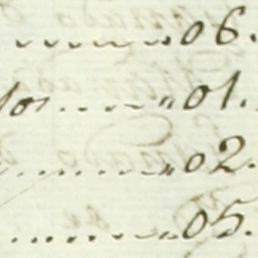 06.
01.
02.
05.